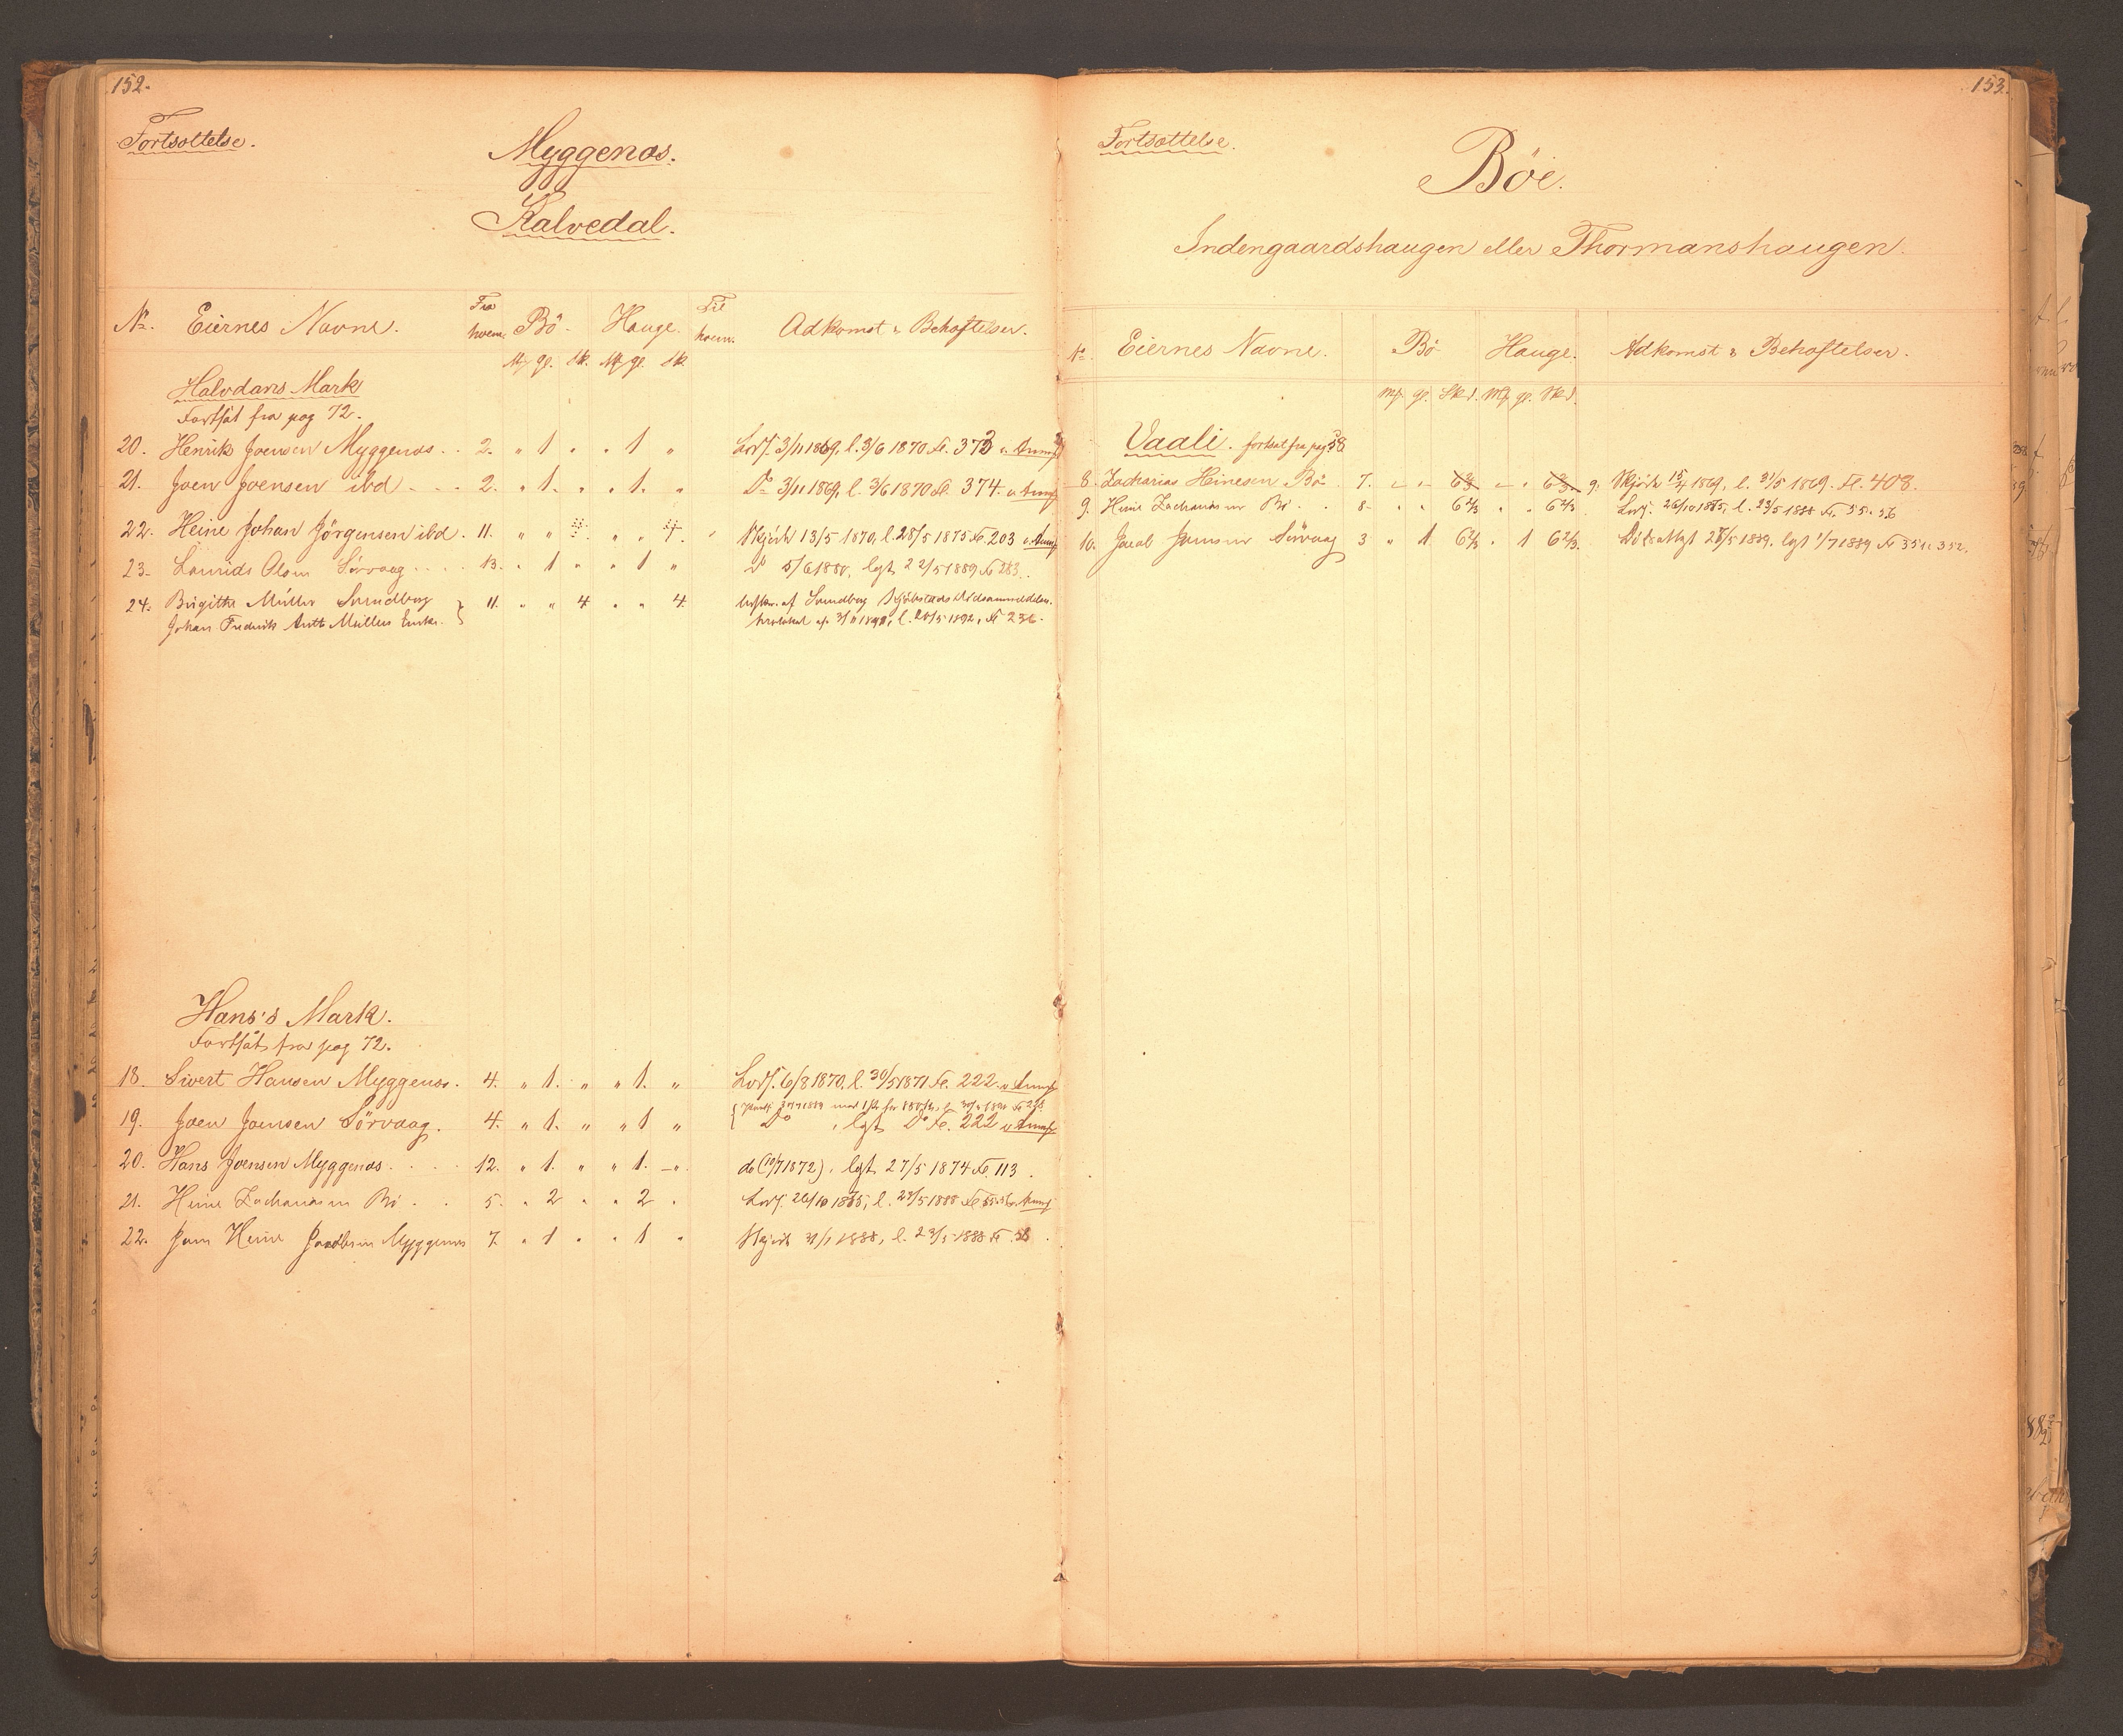 152.
Fortsættelse.
Myggenæs.
Kalvedal.
No. Eiernes Navne. Fra hvem. Bö. Hauge. Til hvem. Adkomst & Behæftelser.
Mk gl. Sk. Mk gl. Sk.
Halvdans Mark
Fortsat fra pag 72.
20. Henrik Joensen Myggenæs . . 2. " 1 " " 1 " Lovf. 3/11 1869, l. 3/6 1870 Fl. 373
21. Joen Joensen ibd . . . 2. " 1. " " 1. " Do 3/11 1869, l. 3/6 1870 Fl. 374.
22. Heine Johan Jörgensen ibd. 11. " " 4. " " 4. " Skjöde 13/5 1870, l. 28/5 1875 Fl. 203
23. Laurids Olsen Sørvaag . . . . 13. " 1 " " 1 " Do 5/6 1880, lgt. 22/5 1889 Fl 283.
24. Birgithe Müller Sundberg } 11. " " 4 " " 4.
Johan Fredrik Müllers Enke. l. 20/5 1892, Fl 236.
Hans's Mark.
Fortsat fra pag 72.
18. Sivert Hansen Myggenæs. 4. " 1. " " 1. " Lovf. 6/8 1870, l. 30/5 1871 Fl. 222.
19. Joen Joensen Sörvaag. 4. " 1. " " 1 " Do , lgt Do Fl. 222
20. Hans Joensen Myggenæs . . . . 12. " 1. " " 1. " do (10/7 1872), lgt 27/5 1874 Fl. 113.
21. Heine Zachariasen Bö . . 5. " 2 " " 2 " Lovf. 26/10 1885, l. 23/5 1888 Fl 55.56
22. Joen Heine Jacobsen Myggenæs 7. " 1 " " 1 " Skjöde 31/1 1888, l. 23/5 1888 Fl
153.
Fortsættelse.
Böe.
Indengaardshaugen eller Thormanshaugen.
No. Eiernes Navne. Bö Hauge. Adkomst & Behæftelser.
Mk. gl. Skd. Mk. gl. Skd.
Vaali. fortsat fra pag 58
8. Zacharias Heinesen Bö 7. " " 6 2/3 " " 6 2/3 9. Skjöde 15/4 1869, l. 31/5 1869. Fl. 408.
9. Heine Zachariasen Bö . . 8. " " 6 2/3 " " 6 2/3. Lovf. 26/10 1885, l. 23/5 1888 Fl. 55. 56
10. Jacob Joensen Sörvaag 3 " 1 6 2/3 " 1 6 2/3. 28/5 1889. lgt 1/7 1889 Fl 351. 352.